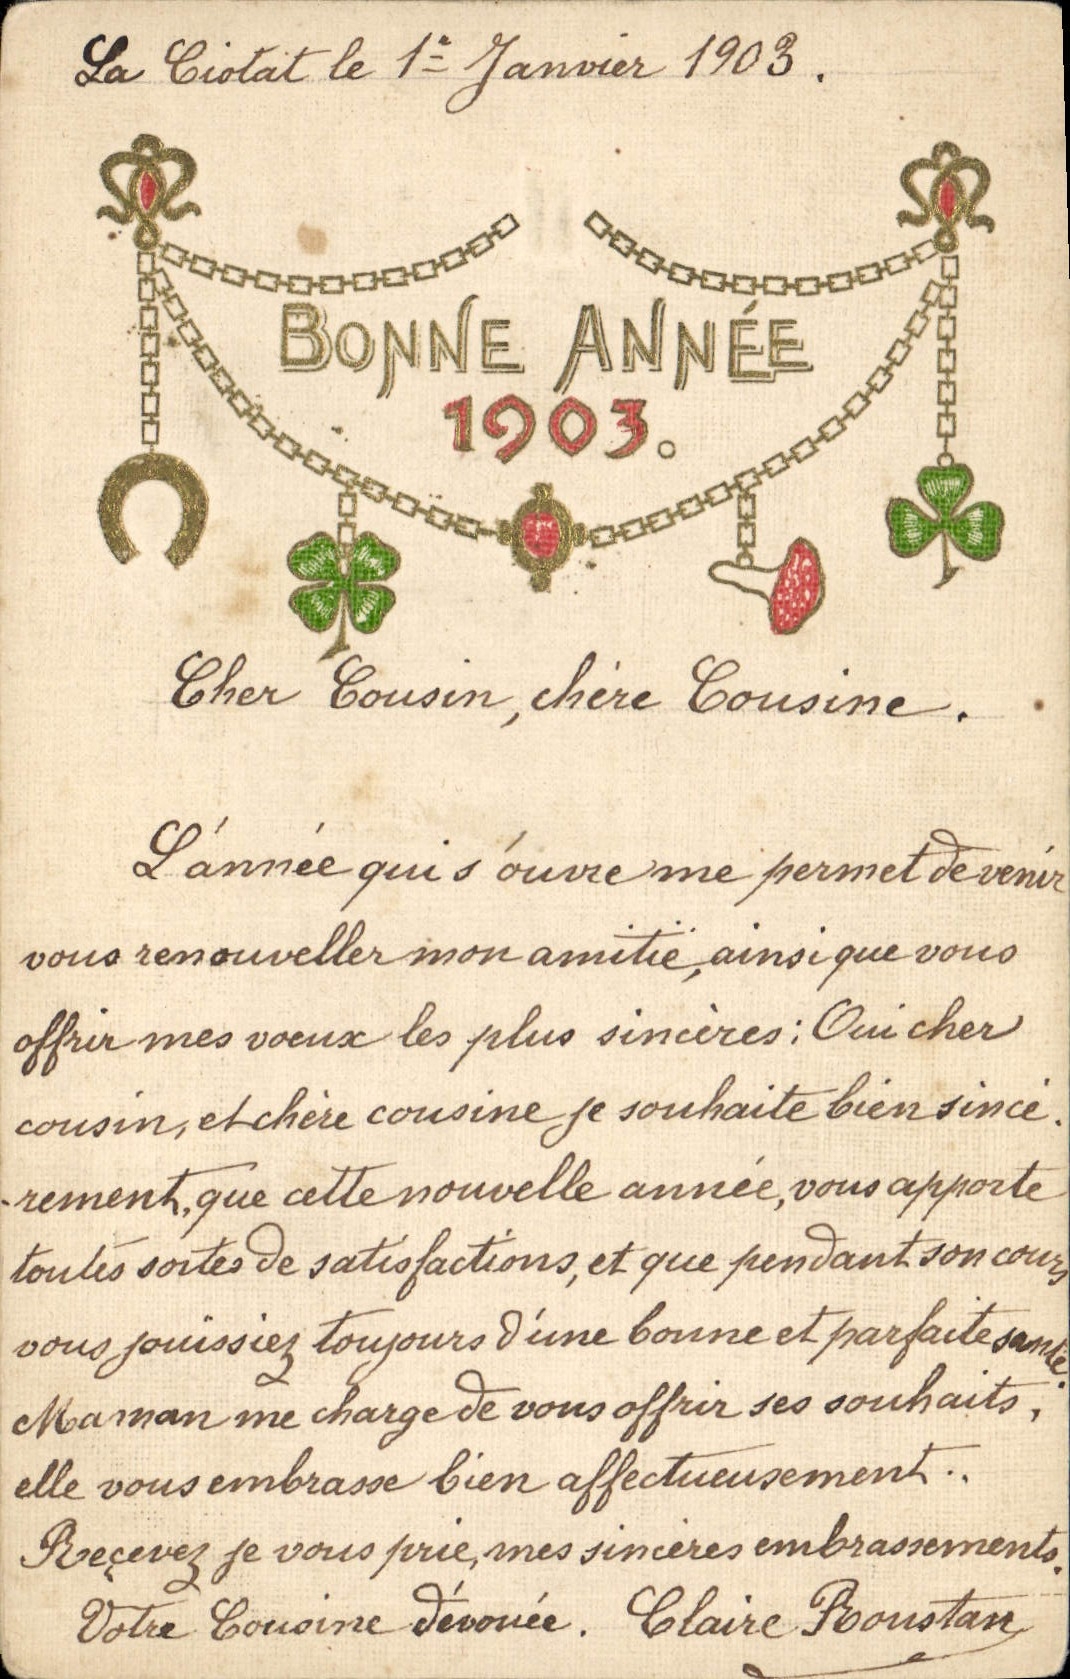 La Ciotat le 1er Janvier 1903.
BONNE ANNÉE
1903.
Cher Cousin, chère Cousine.
L'année qui s'ouvre me permet de venir
vous renouveller mon amitié, ainsi que vous
offrir mes voeux les plus sincères; Oui cher
cousin, et chère cousine je souhaite bien sincé-
-rement, que cette nouvelle année, vous apporte
toutes sortes de satisfactions, et que pendant son cours
vous jouissiez toujours d'une bonne et parfaite santé.
Maman me charge de vous offrir ses souhaits;
elle vous embrasse bien affectueusement..
Reçevez je vous prie, mes sincères embrassements.
Votre Cousine dévouée. Claire Roustan